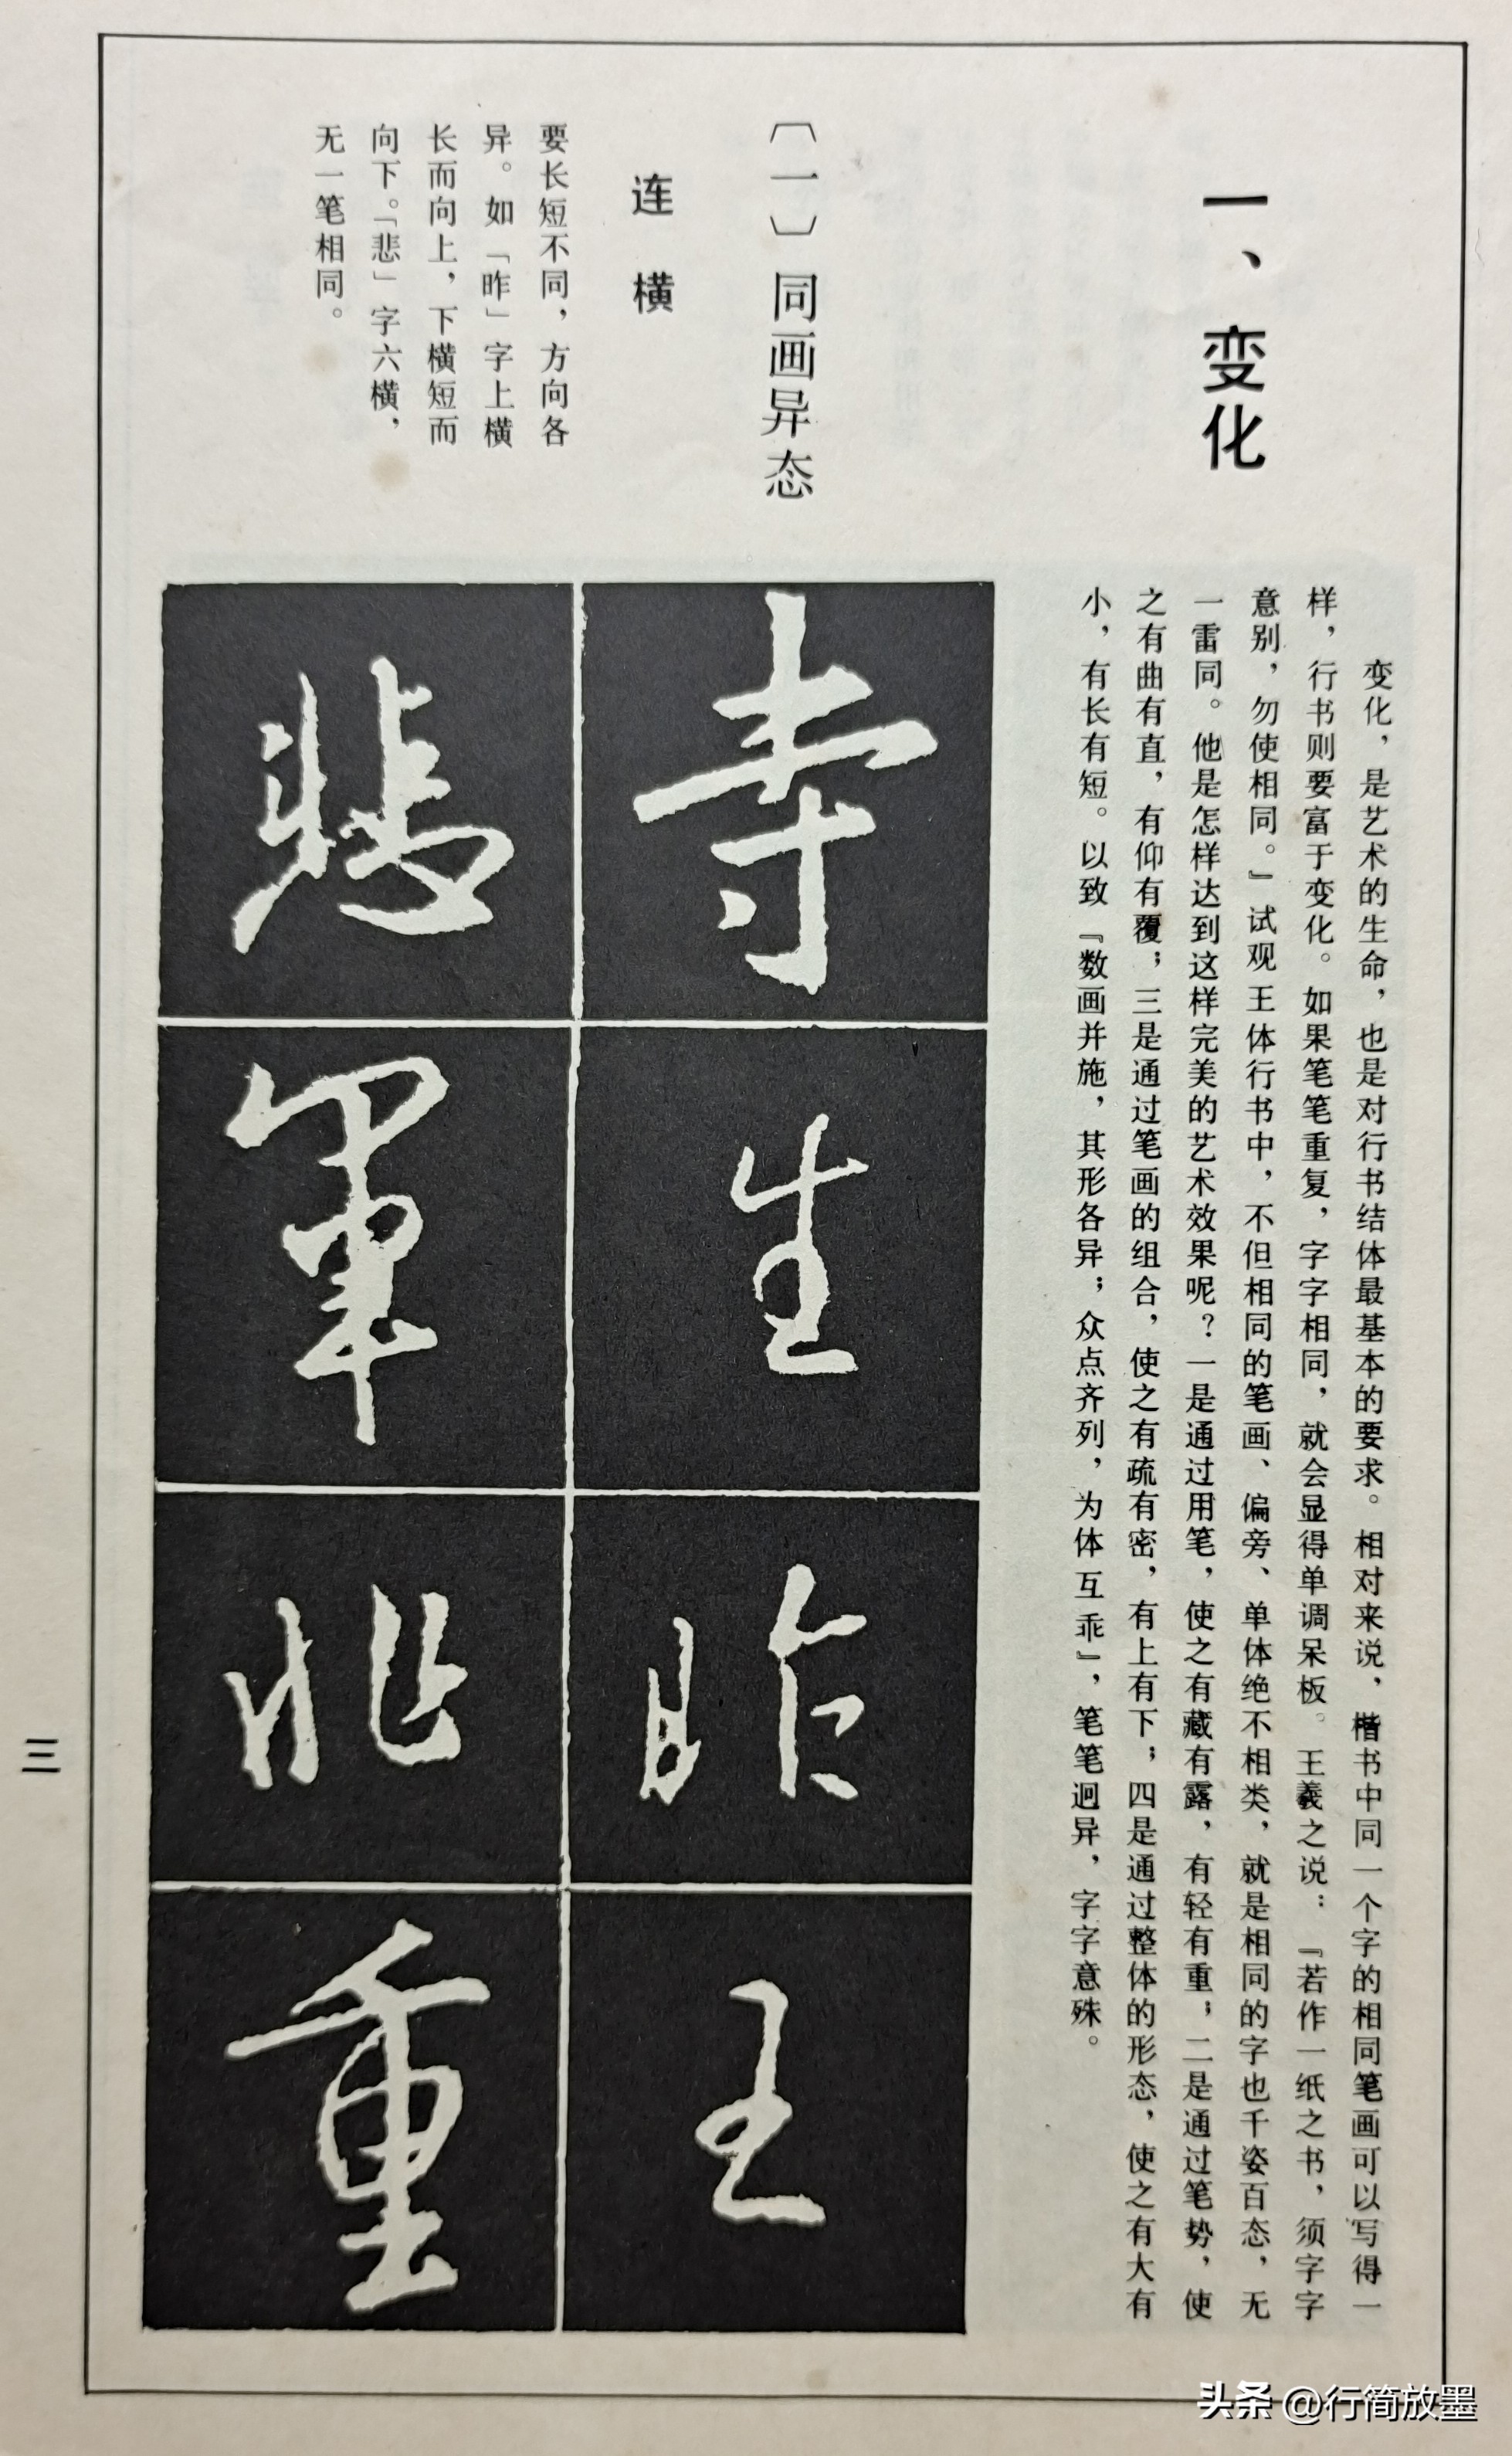 一、变化
变化，是艺术的生命，也是对行书结体最基本的要求。相对来说，楷书中同一个字的相同笔画可以写得一
样，行书则要富于变化。如果笔笔重复，字字相同，就会显得单调呆板。王羲之说：『若作一纸之书，须字字
意别，勿使相同。』试观王体行书中，不但相同的笔画、偏旁、单体绝不相类，就是相同的字也千姿百态，无
一雷同。他是怎样达到这样完美的艺术效果呢？一是通过用笔，使之有藏有露，有轻有重；二是通过笔势，使
之有曲有直，有仰有覆；三是通过笔画的组合，使之有疏有密，有上有下；四是通过整体的形态，使之有大有
小，有长有短。以致『数画并施，其形各异；众点齐列，为体互乖』，笔笔迥异，字字意殊。
〔一〕同画异态
连横
要长短不同，方向各
异。如「昨」字上横
长而向上，下横短而
向下。「悲」字六横，
无一笔相同。
寺生昨王
悲军非重
三
头条 @行简放墨